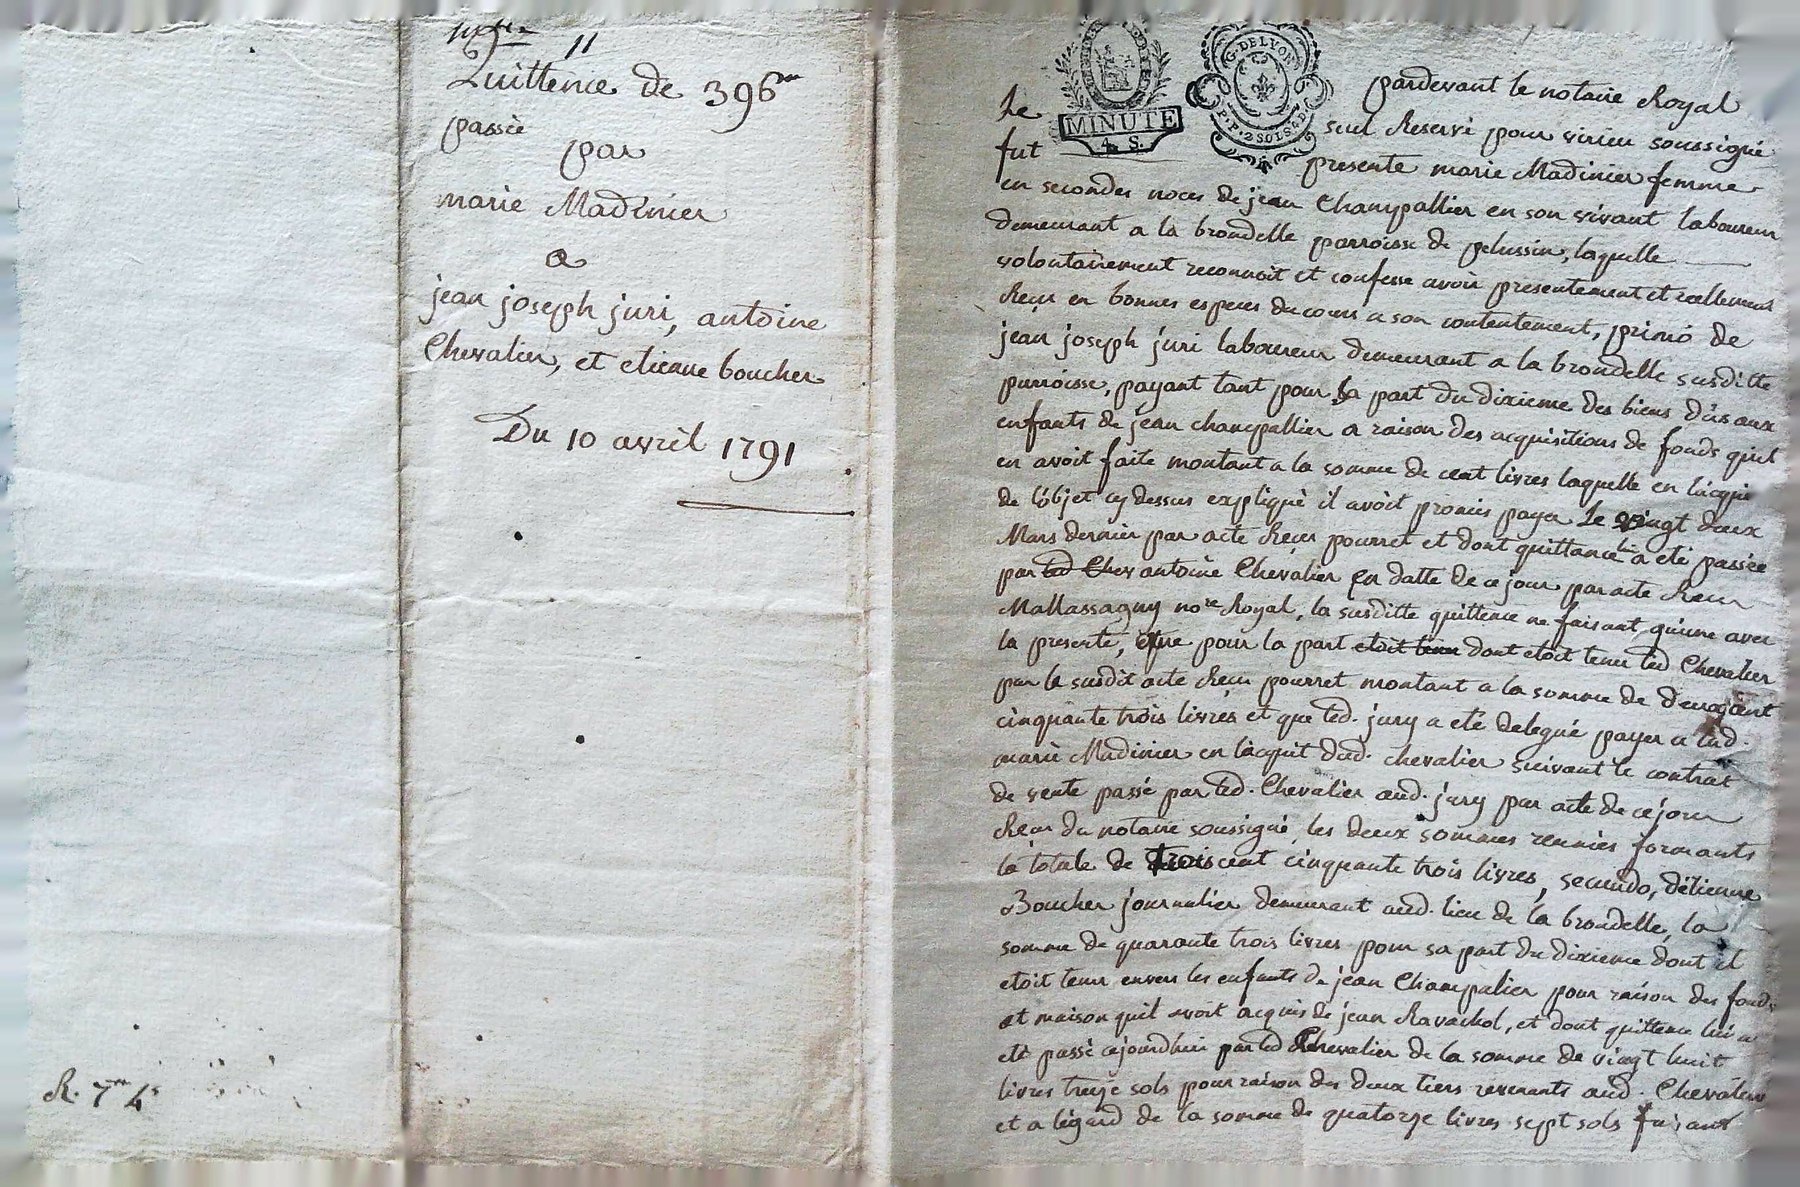 11
Quittence de 396
passée
par
marie Madinier
a
jean joseph juri, antoine
Chevalier, et etienne boucher
Du 10 avril 1791
R. 7
MINUTE
4. S.
G. DE LYON
P. P. 2 SOLS 6 D
pardevant le notaire Royal
Re
sur Reservé pour virieu soussigné
fut presente marie Madinier femme
en secondes noces de jean Champallier en son vivant laboureur
demeurant a la brondelle parroisse de pelussin, laquelle
volontairement reconnoit et confesse avoir presentement et reellement
Reçu en bonnes especes du cours a son contentement, primò de
jean joseph juri laboureur demeurant a la brondelle susditte
parroisse, payant tant pour sa part du dixieme des biens dûs aux
enfants de jean champallier a raison des acquisitions de fonds quil
en avoit faite montant a la somme de cent livres laquelle en lacquit
de lobjet cy dessus expliqué il avoit promis payer le vingt deux
Mars dernier par acte Reçu pourret et dont quittance lui a eté passée
par led Chev antoine Chevalier en datte de ce jour par acte Reçu
Mallassagny nore Royal, la susditte quittence ne faisant qu'une avec
la presente, que pour la part etoit tenu dont etoit tenu led Chevalier
par le susdit acte Reçu pourret montant a la somme de deux cent
cinquante trois livres et que led. jury a eté delegué payer a lad.
marie Madinier en lacquit dud. chevalier suivant le contrat
de vente passé par led. Chevalier aud. jury par acte de ce jour
Reçu du notaire soussigné, les deux sommes reunies formants
la totale de trois cent cinquante trois livres, secundo, détienne
Boucher journalier demeurant aud. lieu de la brondelle, la
somme de quarante trois livres pour sa part du dixieme dont il
etoit tenu envers les enfants de jean Champalier pour raison des fonds
et maison quil avoit acquis de jean Ravachol, et dont quittence lui a
eté passé cejourdhui par led Chevalier de la somme de vingt huit
livres treize sols pour raison des deux tiers revenants aud. Chevalier
et a légard de la somme de quatorze livres sept sols faisant